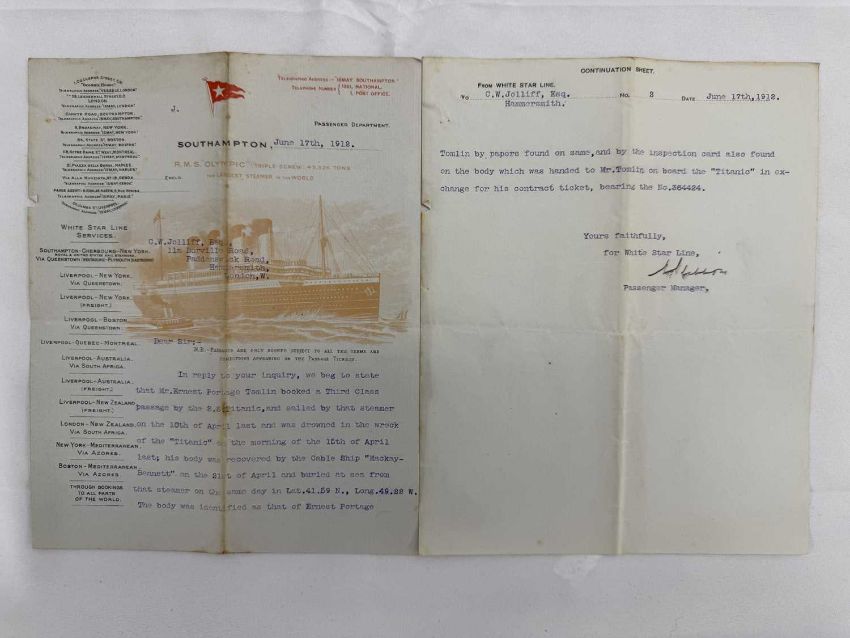 TELEGRAPHIC ADDRESS:- "ISMAY, SOUTHAMPTON."
TELEPHONE NUMBER { 1991, NATIONAL.
POST OFFICE.
J.
PASSENGER DEPARTMENT.
SOUTHAMPTON, June 17th, 1912.
R.M.S. "OLYMPIC" (TRIPLE-SCREW) 45,324 TONS
THE LARGEST STEAMER IN THE WORLD
CANUTE ROAD, SOUTHAMPTON.
9, BROADWAY, NEW YORK.
84, STATE ST, BOSTON.
21, PIAZZA DELLA BORSA, NAPLES.
WHITE STAR LINE
SERVICES.
SOUTHAMPTON-CHERBOURG-NEW YORK.
LIVERPOOL-NEW YORK.
VIA QUEENSTOWN.
LIVERPOOL-NEW YORK.
(FREIGHT.)
LIVERPOOL-BOSTON
VIA QUEENSTOWN.
LIVERPOOL-QUEBEC-MONTREAL.
LIVERPOOL-AUSTRALIA.
VIA SOUTH AFRICA.
LIVERPOOL-AUSTRALIA.
(FREIGHT.)
LIVERPOOL-NEW ZEALAND
(FREIGHT.)
LONDON-NEW ZEALAND.
VIA SOUTH AFRICA.
NEW YORK-MEDITERRANEAN
VIA AZORES.
BOSTON-MEDITERRANEAN
VIA AZORES.
THROUGH BOOKINGS
TO ALL PARTS
OF THE WORLD.
C.W.Jolliff, Esq.,
Road,
Paddenswick Road,
Hammersmith,
London, W.
Dear Sir:-
N.B.-PASSAGES ARE ONLY BOOKED SUBJECT TO ALL THE TERMS AND
CONDITIONS APPEARING ON THE PASSAGE TICKETS.
In reply to your inquiry, we beg to state
that Mr.Ernest Portage Tomlin booked a Third Class
passage by the S.S.Titanic, and sailed by that steamer
on the 10th of April last and was drowned in the wreck
of the "Titanic" on the morning of the 15th of April
last; his body was recovered by the Cable Ship "Mackay-
Bennett" on the 21st of April and buried at sea from
that steamer on the same day in Lat.41.59 N., Long.49.28 W.
The body was identified as that of Ernest Portage
CONTINUATION SHEET.
FROM WHITE STAR LINE.
TO C.W.Jolliff, Esq. NO. 2 DATE June 17th,1912.
Hammersmith.
Tomlin by papers found on same,and by the inspection card also found
on the body which was handed to Mr.Tomlin on board the "Titanic" in ex-
change for his contract ticket, bearing the No.364424.
Yours faithfully,
for White Star Line,
Passenger Manager,